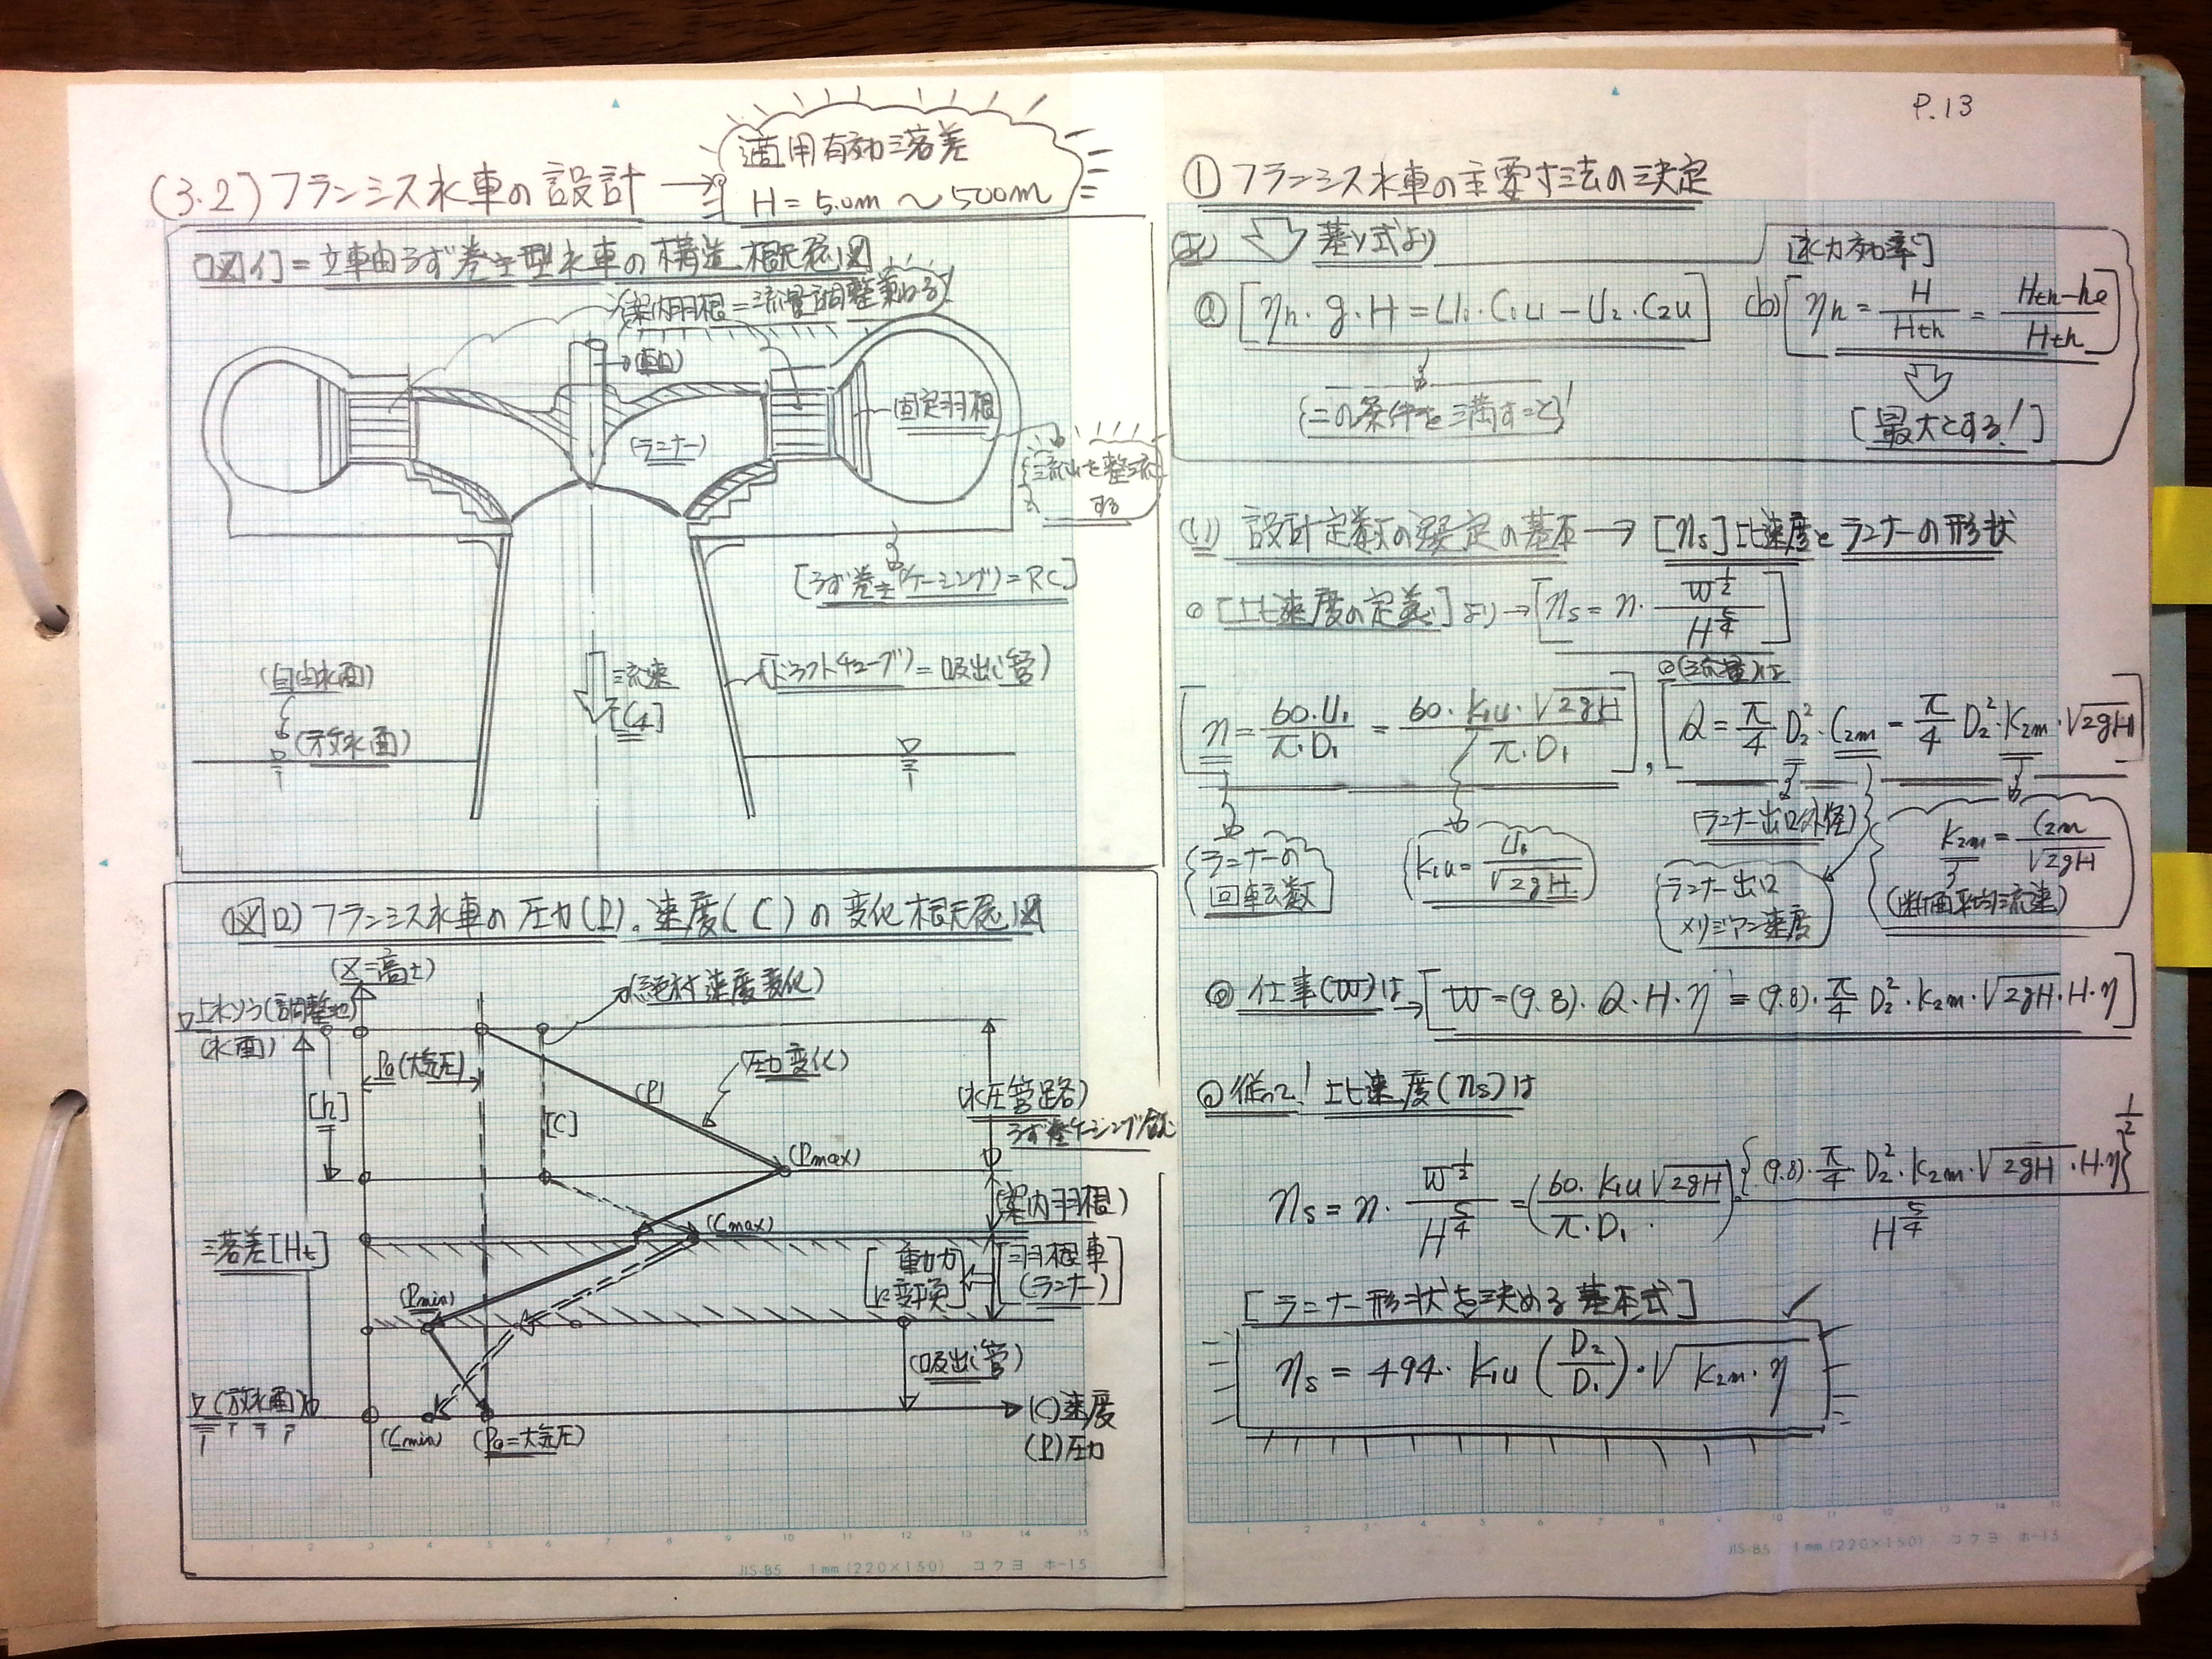 P.13
(3.2) フランシス水車の設計 →
適用有効落差
H = 5.0m ～ 500m
[図イ] = 立軸うず巻き型水車の構造概念図
(案内羽根 = 流量調整兼ねる)
(軸)
固定羽根
(ランナー)
流水を整流
する
[うず巻き(ケーシング) = RC]
(ドラフトチューブ) = 吸出(管)
流速
[C4]
(自由水面)
(放水面)
(図ロ) フランシス水車の圧力(P)。速度(C)の変化概念図
(Z = 高さ)
(絶対速度変化)
上水ソウ(調整地)
(水面)
Pa(大気圧)
(圧力変化)
(P)
[h]
[C]
(水圧管路)
うず巻ケーシング含む
(Pmax)
(案内羽根)
(Cmax)
落差[Ht]
[動力に変換]
[羽根車(ランナー)]
(Pmin)
(吸出(管)
(放水面)
(Cmin) (Pa=大気圧)
(C)速度
(P)圧力
JIS-B5 1mm(220×150) コクヨ ホ-15
① フランシス水車の主要寸法の決定
基本式より
[水力効率]
ⓐ [ηh・g・H = U1・C1u − U2・C2u]
(b) [ηh = H/Hth = (Hth−he)/Hth]
{この条件を満すこと}
[最大とする!]
(1) 設計定数の選定の基本 → [ns]比速度とランナーの形状
◎ [比速度の定義] より → [ns = n・W^(1/2)/H^(5/4)]
◎(流量)は
[n = 60・U1/π・D1 = 60・K1u・√2gH/π・D1], [Q = π/4 D2²・C2m = π/4 D2²・K2m・√2gH]
(ランナー出口外径)
ランナーの
回転数
K1u = U1/√2gH
ランナー出口
メリジアン速度
K2m = C2m/√2gH
(断面平均流速)
◎ 仕事(W)は → [W = (9.8)・Q・H・η = (9.8)・π/4 D2²・K2m・√2gH・H・η]
◎ 従って! 比速度(ns)は
ns = n・W^(1/2)/H^(5/4) = (60・K1u√2gH/π・D1)・{(9.8)・π/4 D2²・K2m・√2gH・H・η}^(1/2)/H^(5/4)
[ランナー形状を決める基本式]
ns = 494・K1u(D2/D1)・√K2m・η
JIS-B5 1mm(220×150) コクヨ ホ-15